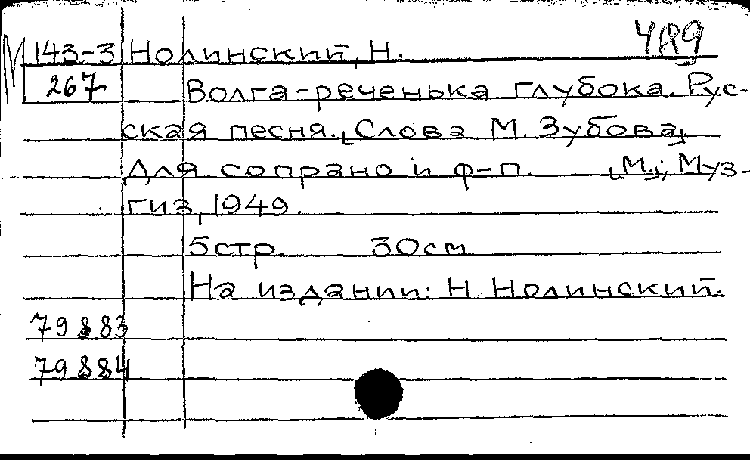 489
М 143-3 Нолинский, Н.
267 Волга-реченька глубока. Рус-
ская песня. [Слова М. Зубова]
Для сопрано и ф-п. [М.], Муз-
гиз, 1949.
5 стр. 30 см
На издании: Н. Нолинский.
79883
79884